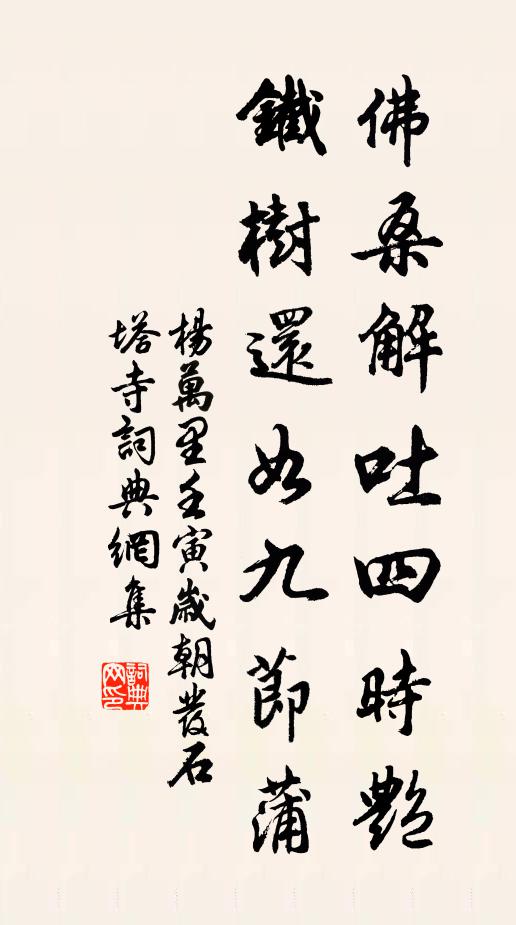 佛桑解吐四時艷
鐵樹還如九節蒲
楊萬里壬寅歲朝發石
塔寺詞典網集
詞典網印